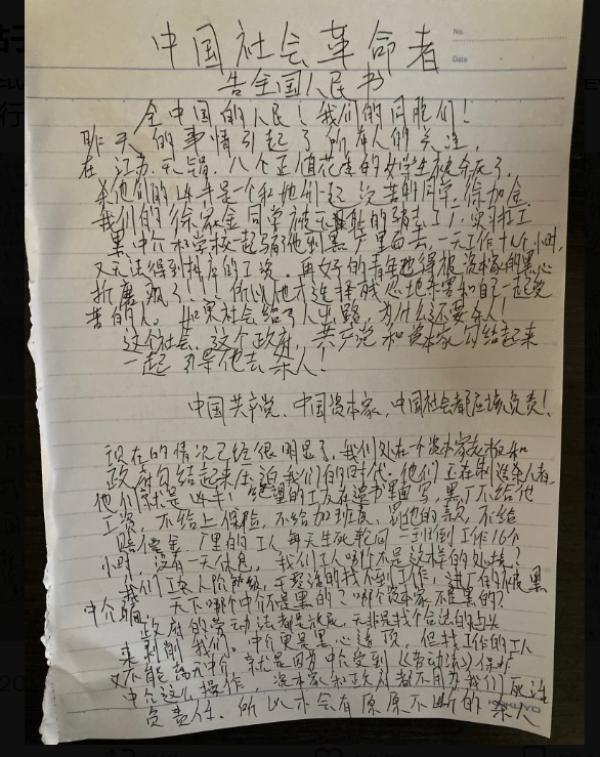 No.
Date
中国社会革命者
告全国人民书
全中国的人民！我们的同胞们！
昨天的事情引起了所有人的关注，
在江苏无锡，八个正值花生的女学生被杀死了，
杀他们的凶手是一个和她们一起 苦的同学，徐加金
我们的徐家金同学被无耻的骗去工厂，实习打工
黑中介和学校一起骗他到黑厂里面去，一天工作十八个小时，
又无法得到 的工资，再好的青年也得被资本家的黑心
折磨 了，所以他才选择残忍地杀害和自己一起受
苦的人，如果社会给了人出路，为什么还要杀人！
这个社会，这个政府，共产党和资本家勾结起来
一起引导他去杀人！
中国共产党、中国资本家、中国社会都应该负责！
现在的情况已经很明显了，我们处在一个资本家 和
政府勾结起来压迫我们的时代，他们正在制造杀人者，
他们就是凶手！绝望的工友在遗书里面写，黑厂不给他
工资，不给上保险，不给加班费，罚他的款，不给
赔偿金，厂里的工人每天生死轮回一到 到工作16个
小时，没有一天休息，我们工人哪个不是这样的处境？
我们工人阶级， 的找不到工作，进厂的被黑
中介骗，天下哪个中介不是黑的？哪个资本家不是黑的？
政府的劳动法都是放屁，无非是找个合法的
来剥削我们。中介更是黑心透顶，但找工作的工人
又不能 中介，就是因为中介受到《劳动法》保护
中介这么操作，资本家和政府都不用为我们死 
负责任。所以才会有原原不断的杀人
KOKUYO